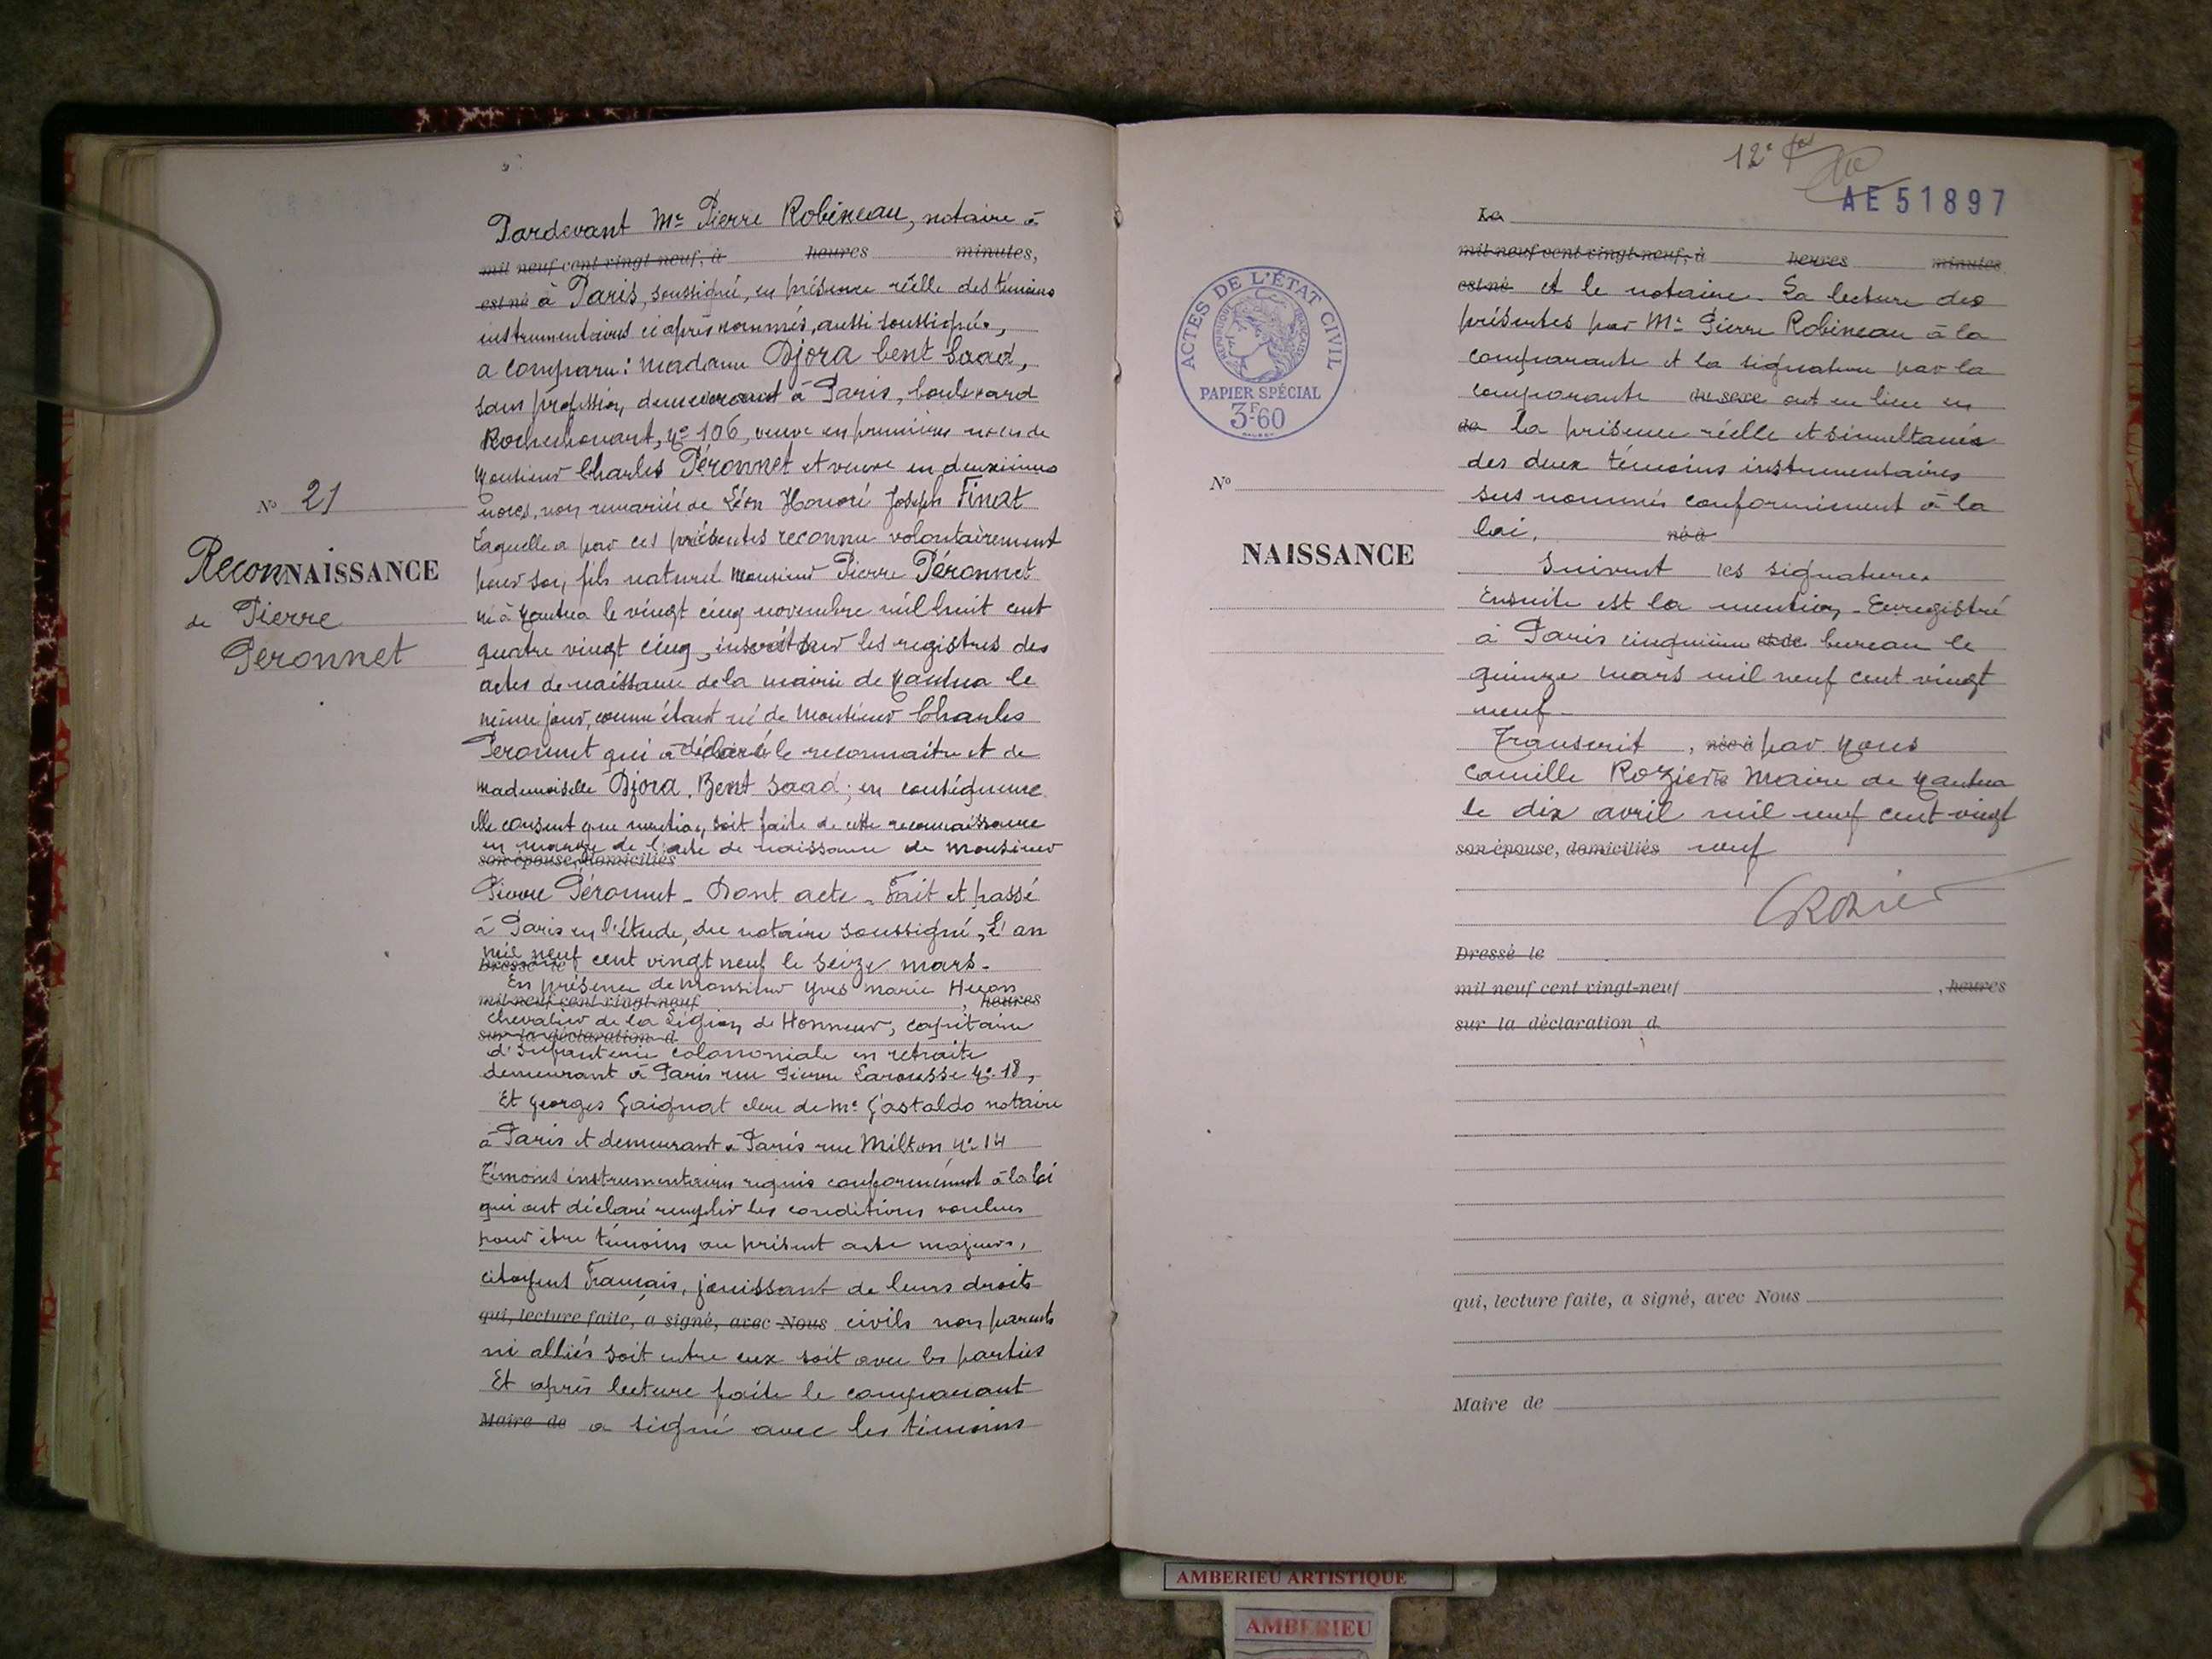 Pardevant Me Pierre Robineau, notaire à
mil neuf cent vingt neuf, à heures minutes,
est né à Paris, soussigné, en présence réelle des témoins
instrumentaires ci après nommés, aussi soussignés,
a comparu : madame Djora bent Saad,
sans profession, demeurant à Paris, boulevard
Rochechouart, No 106, veuve en premières noces de
Monsieur Charles Péronnet et veuve en deuxièmes
noces, non remariée de Léon Honoré Joseph Finat
Laquelle a par ces présentes reconnu volontairement
pour son fils naturel Monsieur Pierre Péronnet
né à Nantua le vingt cinq novembre mil huit cent
quatre vingt cinq, inscrit sur les registres des
actes de naissance de la mairie de Nantua le
même jour, comme étant né de Monsieur Charles
Peronnet qui a déclaré le reconnaitre et de
Mademoiselle Djora Bent Saad ; en conséquence
elle consent que mention soit faite de cette reconnaissance
en marge de l'acte de naissance de Monsieur
son épouse, domiciliés
Pierre Péronnet - Dont acte - Fait et passé
à Paris en l'étude, du notaire soussigné, L'an
mil neuf cent vingt neuf le seize mars -
Dressé le
En présence de Monsieur Yves Marie
mil neuf cent vingt-neuf , heures
chevalier de la Légion de Honneur, capitaine
sur la déclaration d
d'Infanterie colonnoniale en retraite
demeurant à Paris rue Pierre Larousse No 18,
Et Georges Gaignat clerc de Me Gastaldo notaire
à Paris et demeurant à Paris rue Milton No 14
Témoins instrumentaires requis conformément à la loi
qui ont déclaré remplir les conditions voulues
pour être témoins au présent acte majeurs,
citoyens Français, jouissant de leurs droits
qui, lecture faite, a signé, avec Nous civils non parents
ni alliés soit entre eux soit avec les parties
Et après lecture faite le comparant
Maire de a signé avec les témoins
No 21
ReconNAISSANCE
de Pierre
Peronnet
12e
AE 51897
Le
mil neuf cent vingt-neuf, à heures minutes
est né et le notaire. La lecture des
présentes par Me Pierre Robineau à la
comparante et la signature par la
comparante du sexe ont eu lieu en
de la présence réelle et simultanée
des deux témoins instrumentaires
sus nommés conformément à la
loi. né à
Suivent les signatures
Ensuite est la mention - Enregistré
à Paris cinquième et de bureau le
quinze mars mil neuf cent vingt
neuf -
Transcrit , née à par Nous
Camille Rozier Maire de Nantua
le dix avril mil neuf cent vingt
son épouse, domiciliés neuf
CRozier
Dressé le
mil neuf cent vingt-neuf , heures
sur la déclaration d
qui, lecture faite, a signé, avec Nous
Maire de
ACTES DE L'ÉTAT CIVIL
RÉPUBLIQUE FRANÇAISE
PAPIER SPÉCIAL
3F60
No
NAISSANCE
AMBERIEU ARTISTIQUE
AMBERIEU